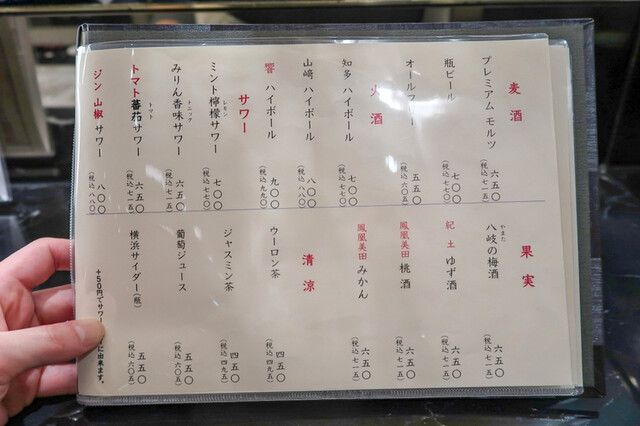 麦酒
プレミアム モルツ 六五〇 (税込 七一五)
瓶ビール 七〇〇 (税込 七七〇)
オールフリー 五五〇 (税込 六〇五)
火酒
知多 ハイボール 七〇〇 (税込 七七〇)
山﨑 ハイボール 八〇〇 (税込 八八〇)
響 ハイボール 九〇〇 (税込 九九〇)
サワー
ミント檸檬サワー 七〇〇 (税込 七七〇)
レモン
みりん香味サワー 六五〇 (税込 七一五)
トニック
トマト蕃茄サワー 六五〇 (税込 七一五)
トマト
ジン 山椒 サワー 八〇〇 (税込 八八〇)
果実
やまた
八岐の梅酒 六五〇 (税込 七一五)
紀土 ゆず酒 六五〇 (税込 七一五)
鳳凰美田 桃酒 六五〇 (税込 七一五)
鳳凰美田 みかん 六五〇 (税込 七一五)
清涼
ウーロン茶 四五〇 (税込 四九五)
ジャスミン茶 四五〇 (税込 四九五)
葡萄ジュース 五五〇 (税込 六〇五)
横浜サイダー(瓶) 五五〇 (税込 六〇五)
+50円でサワーに出来ます。